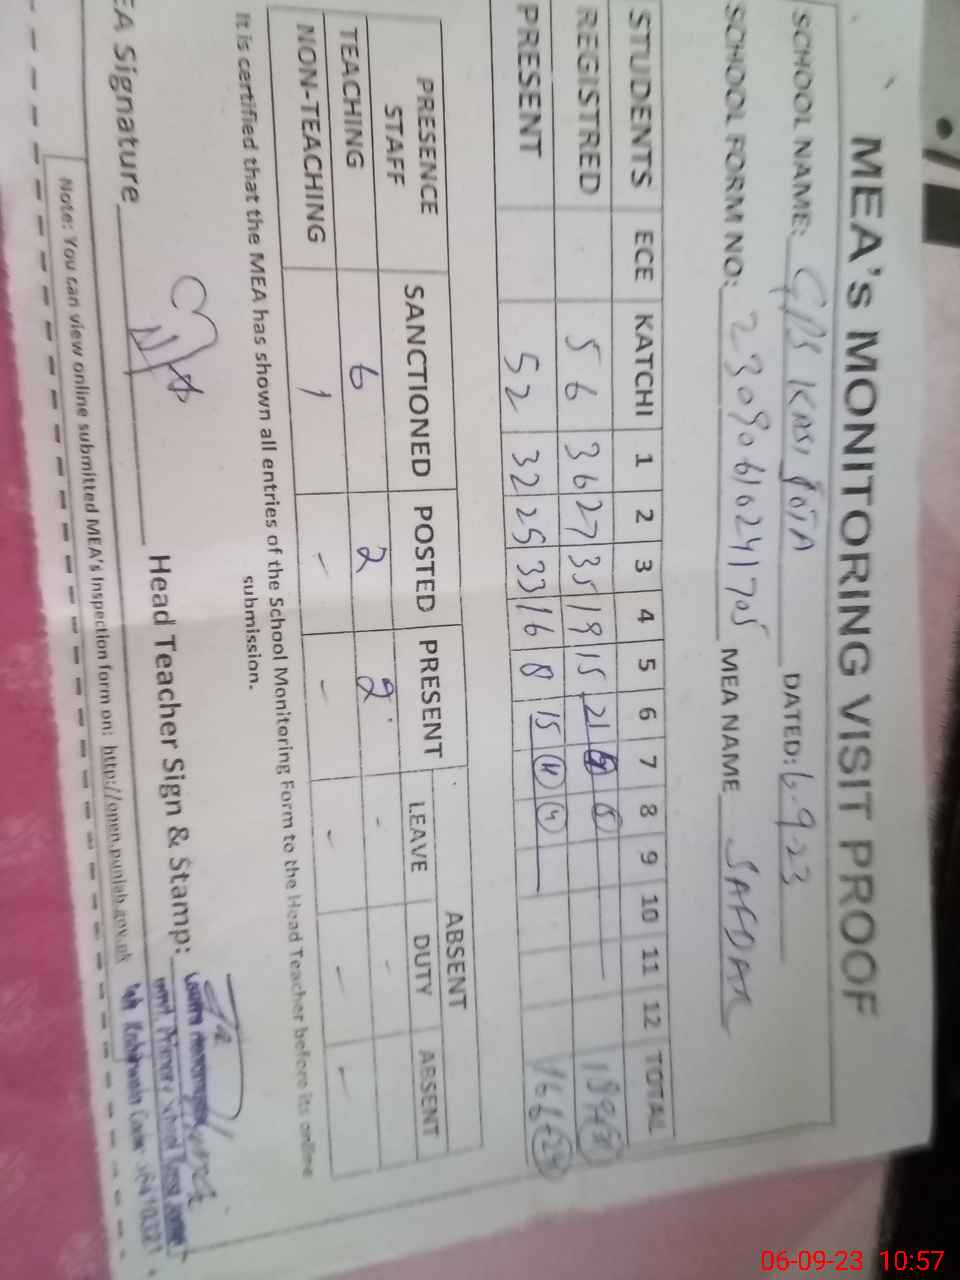 MEA's MONITORING VISIT PROOF
SCHOOL NAME: GPS DATED: 6-9-23
SCHOOL FORM NO: 23090610241705 MEA NAME SAFDAR
STUDENTS ECE KATCHI 1 2 3 4 5 6 7 8 9 10 11 12 TOTAL
REGISTRED 56 36 27 35 19 15 21
PRESENT 52 32 25 33 16 8 15 4 4
PRESENCE STAFF SANCTIONED POSTED PRESENT ABSENT
LEAVE DUTY ABSENT
TEACHING 6 2 2 - -
NON-TEACHING 1 - - - - -
It is certified that the MEA has shown all entries of the School Monitoring Form to the Head Teacher before its online
submission.
EA Signature Head Teacher Sign & Stamp:
Note: You can view online submitted MEA's Inspection form on: http://open.punjab.gov.pk
06-09-23 10:57